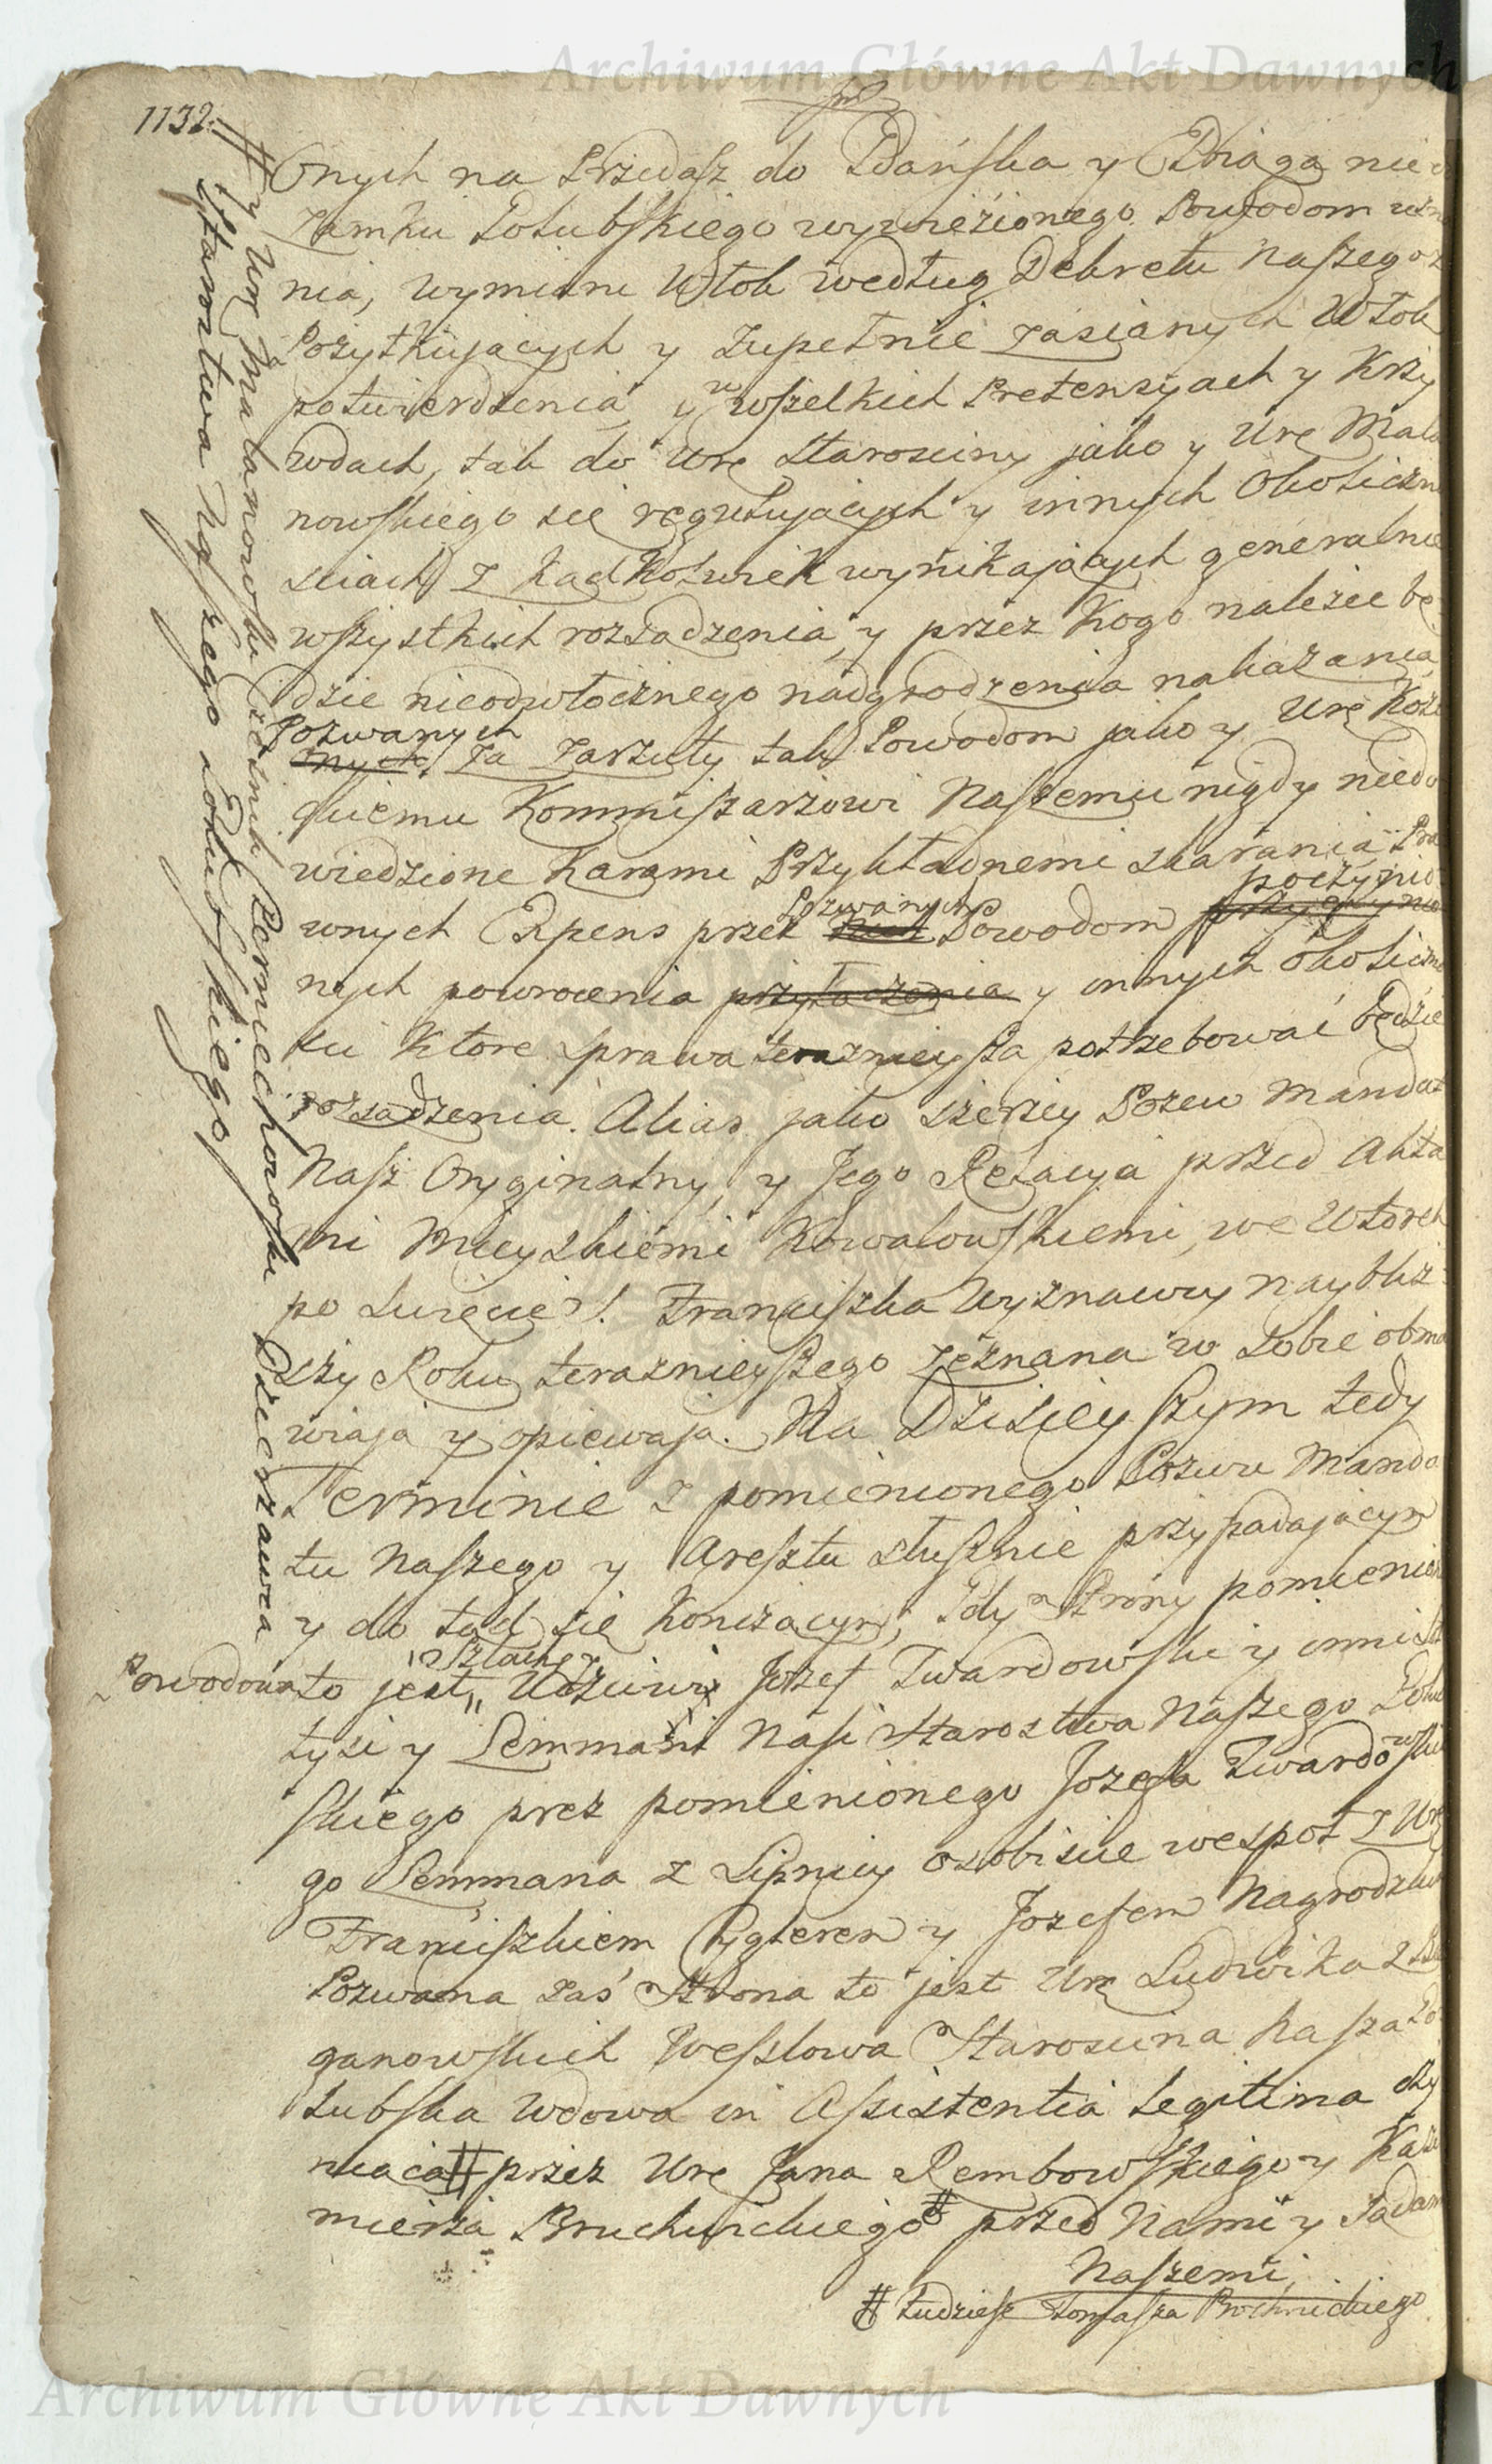 Archiwum Główne Akt Dawnych
1132.
Onych na Przedasz do Gdańska y Elbiąga nie
Zamku Golubskiego wywieźionego Powodom
nia, wymiaru Włok według Dekretu Naszego
Pożytkuiących y zupełnie zasianych Włok
potwierdzenia, y w wszelkich Pretensyach y Krzy
wdach, tak do Ure Starosciny jako y Ure Mala
nowskiego się regulujących y innych Okoliczno
sciach z kądkolwiek wynikających generalnie
wszystkich rozsądzenia, y przez kogo należeć bę
dzie nieodwłocznego nadgrodzenia nakazania,
Pozwanych
Onych za zarzuty tak Powodom jako y Ure Koze
skiemu Kommiszarzowi Naszemu nigdy niedo
wiedzione karami Przykładnemi skarania Pra
poczynio
Pozwanych
wnych Expens przez Powodom
nych powrocenia przyłączenia y innych okoliczno
ści które sprawa teraznieysza potrzebować będzie
rozsądzenia. Alias jako szerzey Pozew Mandat
Nasz Oryginalny, y Jego Relacya przed Akta
mi Mieyskiemi Kowalowskiemi, we Wtorek
po Święcie S. Franciszka Wyznawcy naybliż
szy Roku teraznieyszego zeznana w sobie obma
wiaja y opiewaja. Na Dzisieyszym tedy
Terminie z pomienionego Pozwu Manda
tu Naszego y Aresztu słusznie przypadającym
y do tąd się kończącym, Gdy Strony pomienione
Szlachet
Powodowa to jest Uczciwi Jozef Twardowski y inni
tysi y Lemmani Nasi Starostwa Naszego Golub
skiego przez pomienionego Jozefa Twardowskie
go Lemmana z Lipnicy osobiscie wespoł z Ure
Franciszkiem Cygleren y Jozefem Nagrodzki
Pozwana zas Strona to jest Ure Ludwika z
ganowskich Wesslowa Staroscina Nasza Go
lubska Wdowa in Assistentia legitima czy
niąca # przez Ure Jana Rembowskiego y Kazi
mierza Bruchnickiego # przed Nami y Sądem
Naszemi,
# Tudziesz Tomasza Prochnickiego
# y Ur Małanowski zesnik Czerniechowski Dzierzawca
Starostwa Naszego Golubskiego
Archiwum Główne Akt Dawnych